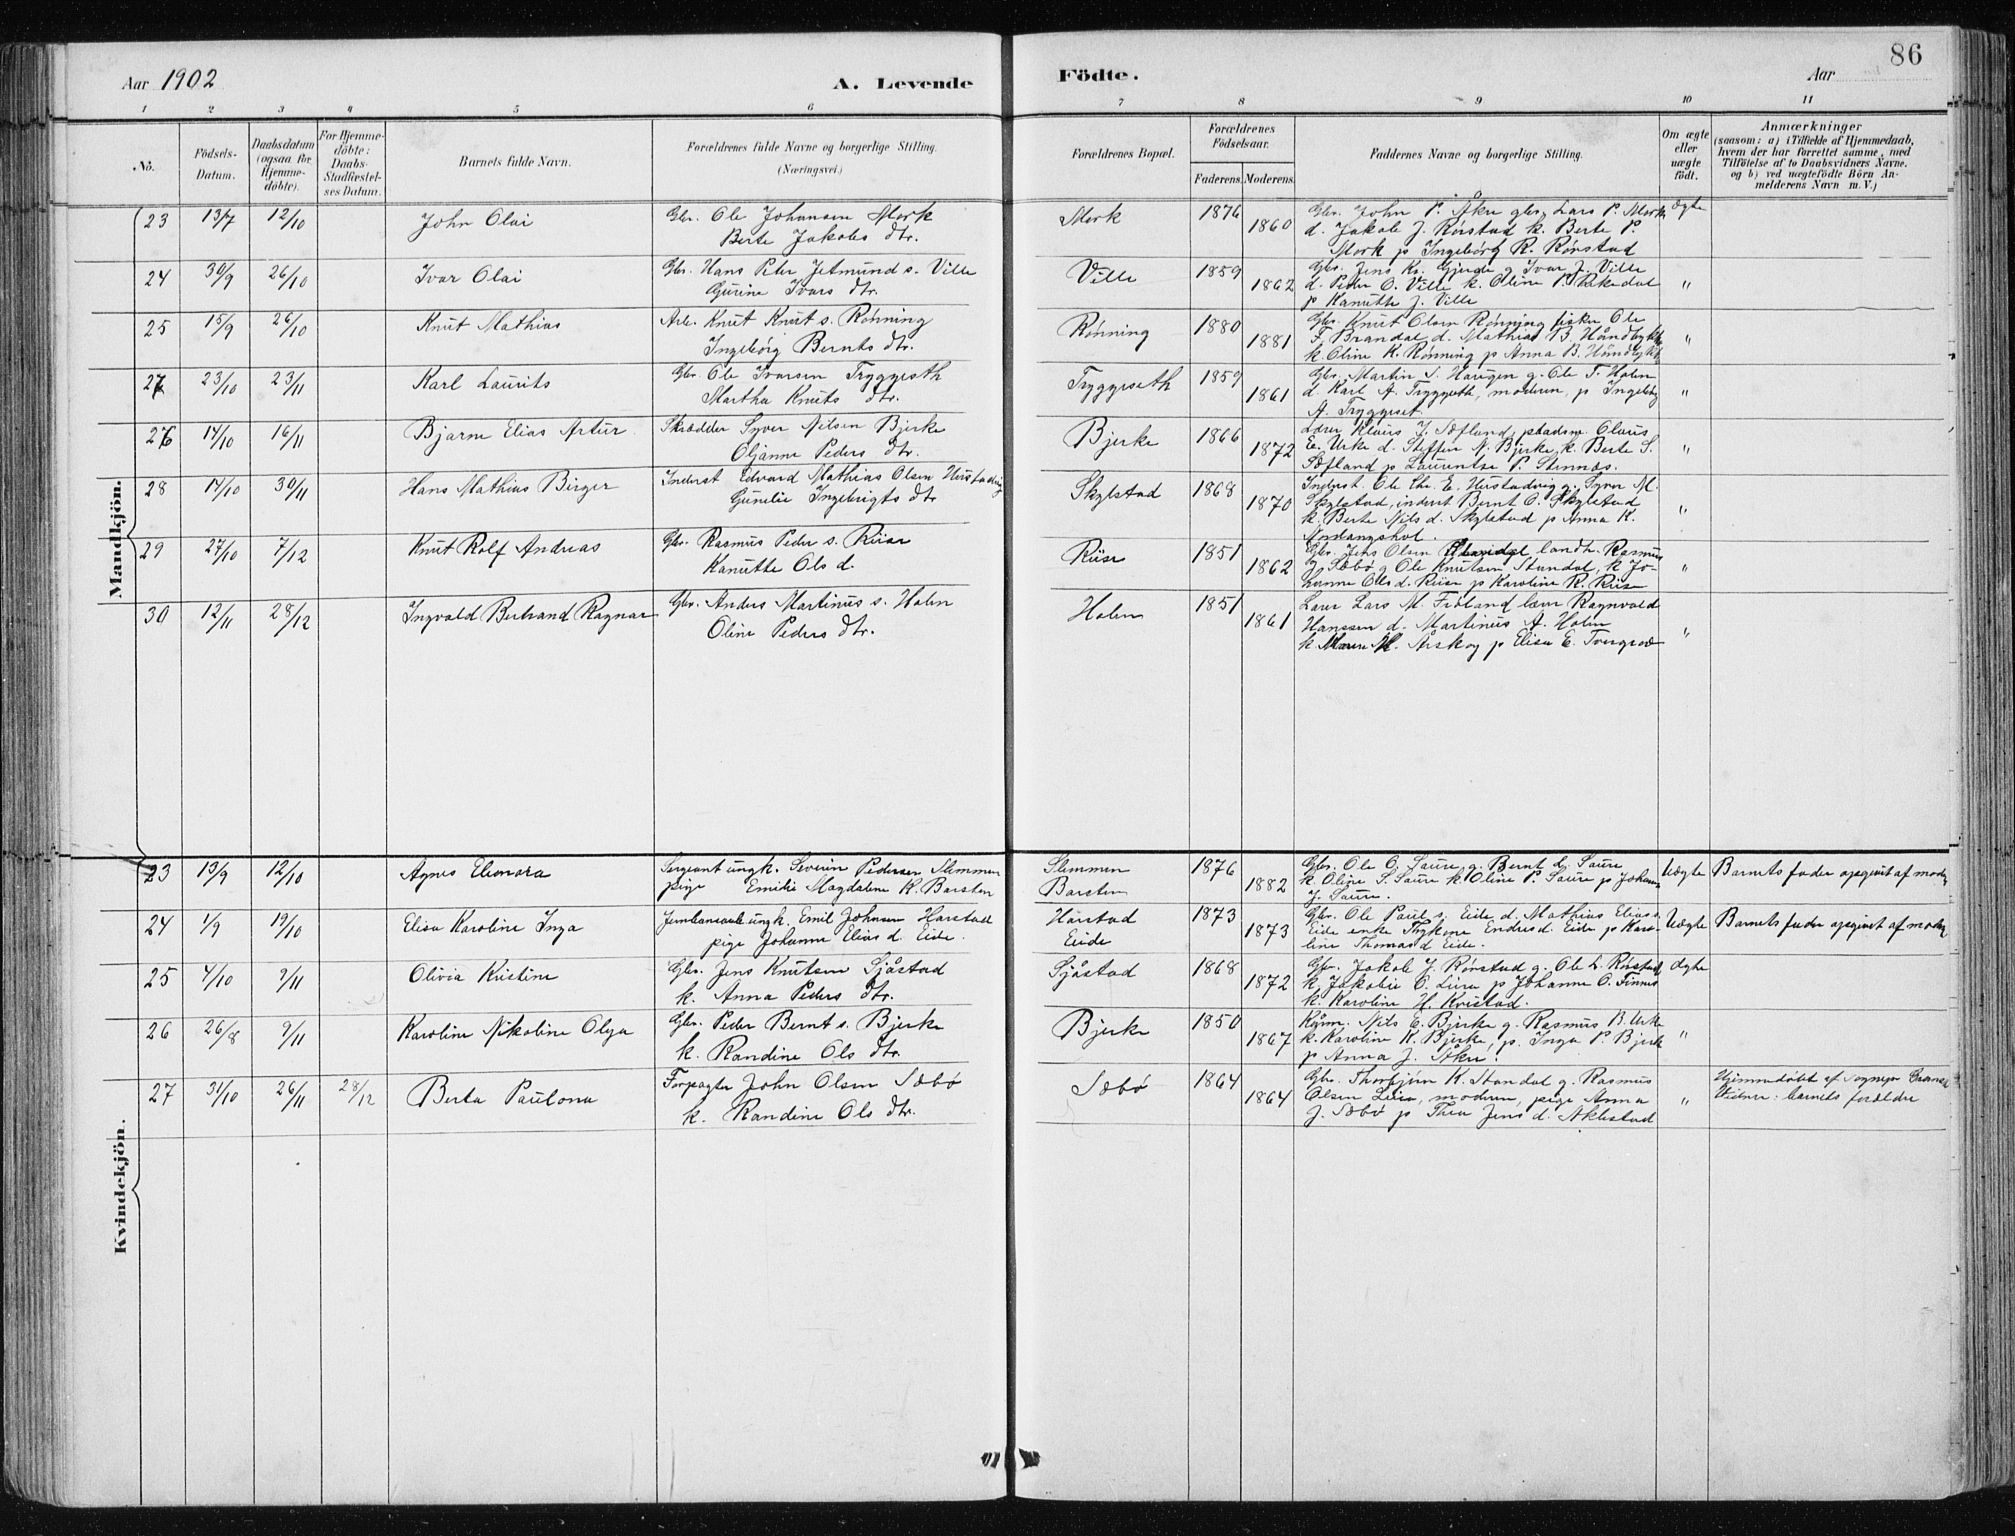 86
Aar 1902
A. Levende
Födte.
Aar
1 2 3 4 5 6 7 8 9 10 11
No.
Födsels-Datum.
Daabsdatum (ogsaa for Hjemmedöbte).
For Hjemmedöbte: Daabs-Stadfæstelses Datum.
Barnets fulde Navn.
Forældrenes fulde Navne og borgerlige Stilling.
(Næringsvei.)
Forældrenes Bopæl.
Forældrenes Födselsaar.
Faderens. Moderens.
Faddernes Navne og borgerlige Stilling.
Om ægte eller uægte födt.
Anmærkninger
(saasom: a) i Tilfælde af Hjemmedaab,
hvem der har forrettet samme, med
Tilföielse af to Daabsvidners Navne,
og b) ved uægtefödte Börn An-
melderens Navn m. V.)
Mandkjön.
23 13/7 12/10 John Olai Gbr. Ole Johansen Mork Mork 1876 Gbr. John P. Åkre gbr. Lars P. Mork ægte
Berte Jakobs dtr. 1860 d. Jakob J. Rørstad k. Berte P.
Mork p Ingeborg R. Rørstad
24 30/9 26/10 Ivar Olai Gbr. Hans Peter Jetmund s. Ville Ville 1859 Gbr. Jens Kr. Gjerde g Ivar J. Ville
Gurine Ivars dtr. 1862 d. Peder O. Ville k. Oline P. "
p Kanutte J. Ville
25 15/9 26/10 Knut Mathias Arb. Knut Knut s. Rønning Rønning 1880 Gbr. Knut Olsen Rønning fisker Ole
Ingeborg Bernts dtr. 1881 F. Brandal d. Mathias B. "
k. Oline K. Rønning p Anna B.
27 23/10 23/11 Karl Laurits Gbr. Ole Ivarsen Tryggeseth Tryggeseth 1859 Gbr. Martin S. Haugen g. Ole T. Holen
Martha Knuts dtr. 1861 d. Karl A. Tryggeseth, moderen, p Ingeborg "
A. Tryggeset
26 14/10 16/11 Bjarne Elias Artur Skrædder Syver Nilsen Bjerke Bjerke 1866 Lærer Klaus J. Sæfland, Claus
Oljanne Peders dtr. 1872 E. Urke d. Steffen N. Bjerke k. Berte S. "
Sæfland p Laurentse P. Stennæs.
28 14/10 30/11 Hans Mathias Birger Inderst Edvard Mathias Olsen Skylstad 1868 Inderst. Ole Chr. E. g. Syver M.
Gunelie Ingebrigts dtr 1870 Skylstad, inderst Bernt O. Skylstad "
k. Berte Nils d. Skylstad p Anna K.
29 27/10 7/12 Knut Rolf Andreas Gbr. Rasmus Peder s. Riise Riise 1851 Gbr. Jens Olsen landh. Rasmus
Kanutte Ols d. 1862 J. Sæbø g Ole Knutsen Standal, k Jo- "
hanne Ols d. Riise p Karoline R. Riise
30 12/11 28/12 Ingvald Bertrand Ragnar Gbr. Anders Martinus s. Holen Holen 1851 Lærer Lars M. Frøland lærer Ragnvald
Oline Peders dtr. 1861 Hanssen d. Martinus A. Holen "
k. Maren M. Årskog p Elisa E.
Kvindekjön.
23 13/9 12/10 Agnes Elenora Sergeant ungk. Severin Pedersen Slemmen Slemmen 1876 Gbr. Ole O. Saure g. Bernt d. Saure Uægte Barnets fader opgivet af moder
pige Emilie Magdalene K. Barsten Barsten 1882 k. Oline S. Saure k Oline P. Saure p Johanne
J. Saure.
24 1/9 19/10 Elisa Karoline Inga ungk. Emil Johnsen Harstad Harstad 1873 Gbr. Ole Paul s. Eide d. Mathias Elias s. Uægte Barnets fader opgivet af moder
pige Johanne Elias d. Eide. Eide 1873 Eide enke Endres d. Eide p Karo-
line Thomas d Eide.
25 4/10 9/11 Olivia Kristine Gbr. Jens Knutsen Sjåstad Sjåstad 1868 Gbr. Jakob J. Rørstad g. Ole L. Rørstad ægte
k. Anna Peders dtr. 1872 k. Jakobie O. p Johanne O. Finnes
k. Karoline H. Kvistad.
26 26/8 9/11 Karoline Nikoline Olga Gbr. Peder Bernt s. Bjerke Bjerke 1850 Nils E. Bjerke g. Rasmus B. Urke
k. Randine Ols dtr. 1867 k. Karoline K. Bjerke, p. Inga P. Bjerke "
p Anna J. Åkre.
27 31/10 26/11 28/12 Berta Paulona Forpagter John Olsen Sæbø Sæbø 1864 Gbr. Thorbjørn K. Standal g. Rasmus Hjemmedøbt af
k. Randine Ols dtr. 1864 Olsen moderen, pige Anna " Vidner: barnets forældre
J. Sæbø p Thea Jens d. Aklestad